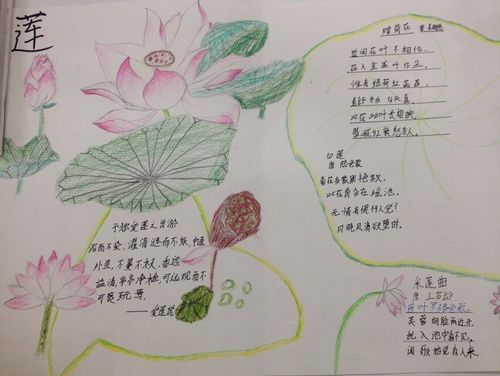 莲
赠荷花 李商隐
世间花叶不相伦,
花入金盆叶作尘。
惟有绿荷红菡萏,
卷舒开合任天真。
此花此叶长相映,
翠减红衰愁杀人。
白莲
唐 陆龟蒙
素花多蒙别艳欺,
此花真合在瑶池。
无情有恨何人觉?
月晓风清欲堕时。
予独爱莲之出淤
泥而不染,濯清涟而不妖,中通
外直,不蔓不枝,香远
益清,亭亭净植,可远观而不
可亵玩焉。
——爱莲说
采莲曲
唐 王昌龄
荷叶罗裙色裁,
芙蓉向脸两边开,
乱入池中看不见,
闻歌始觉有人来。